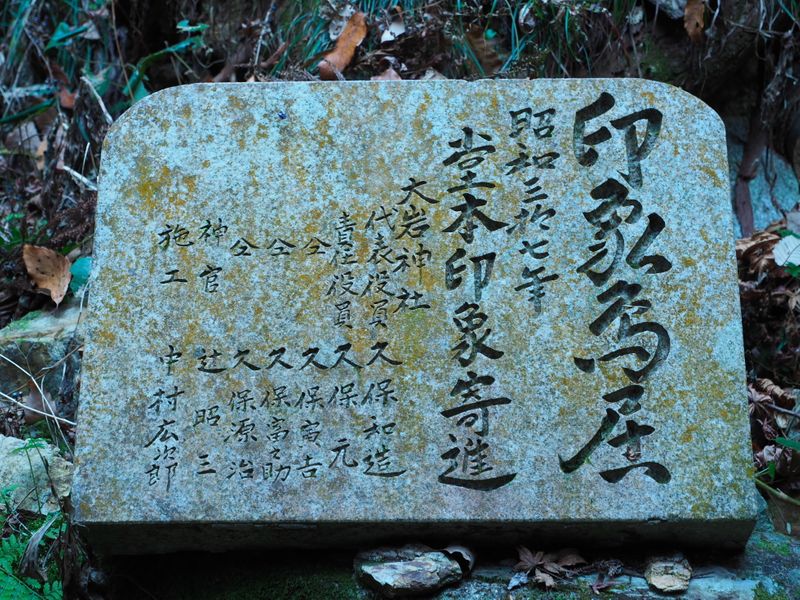 印象鳥居
昭和三拾七年
堂本印象寄進
大岩神社
代表役員 久保和造
責任役員 久保元
仝 久保寅吉
仝 久保富之助
仝 久保源治
神官 辻昭三
施工 中村広次郎